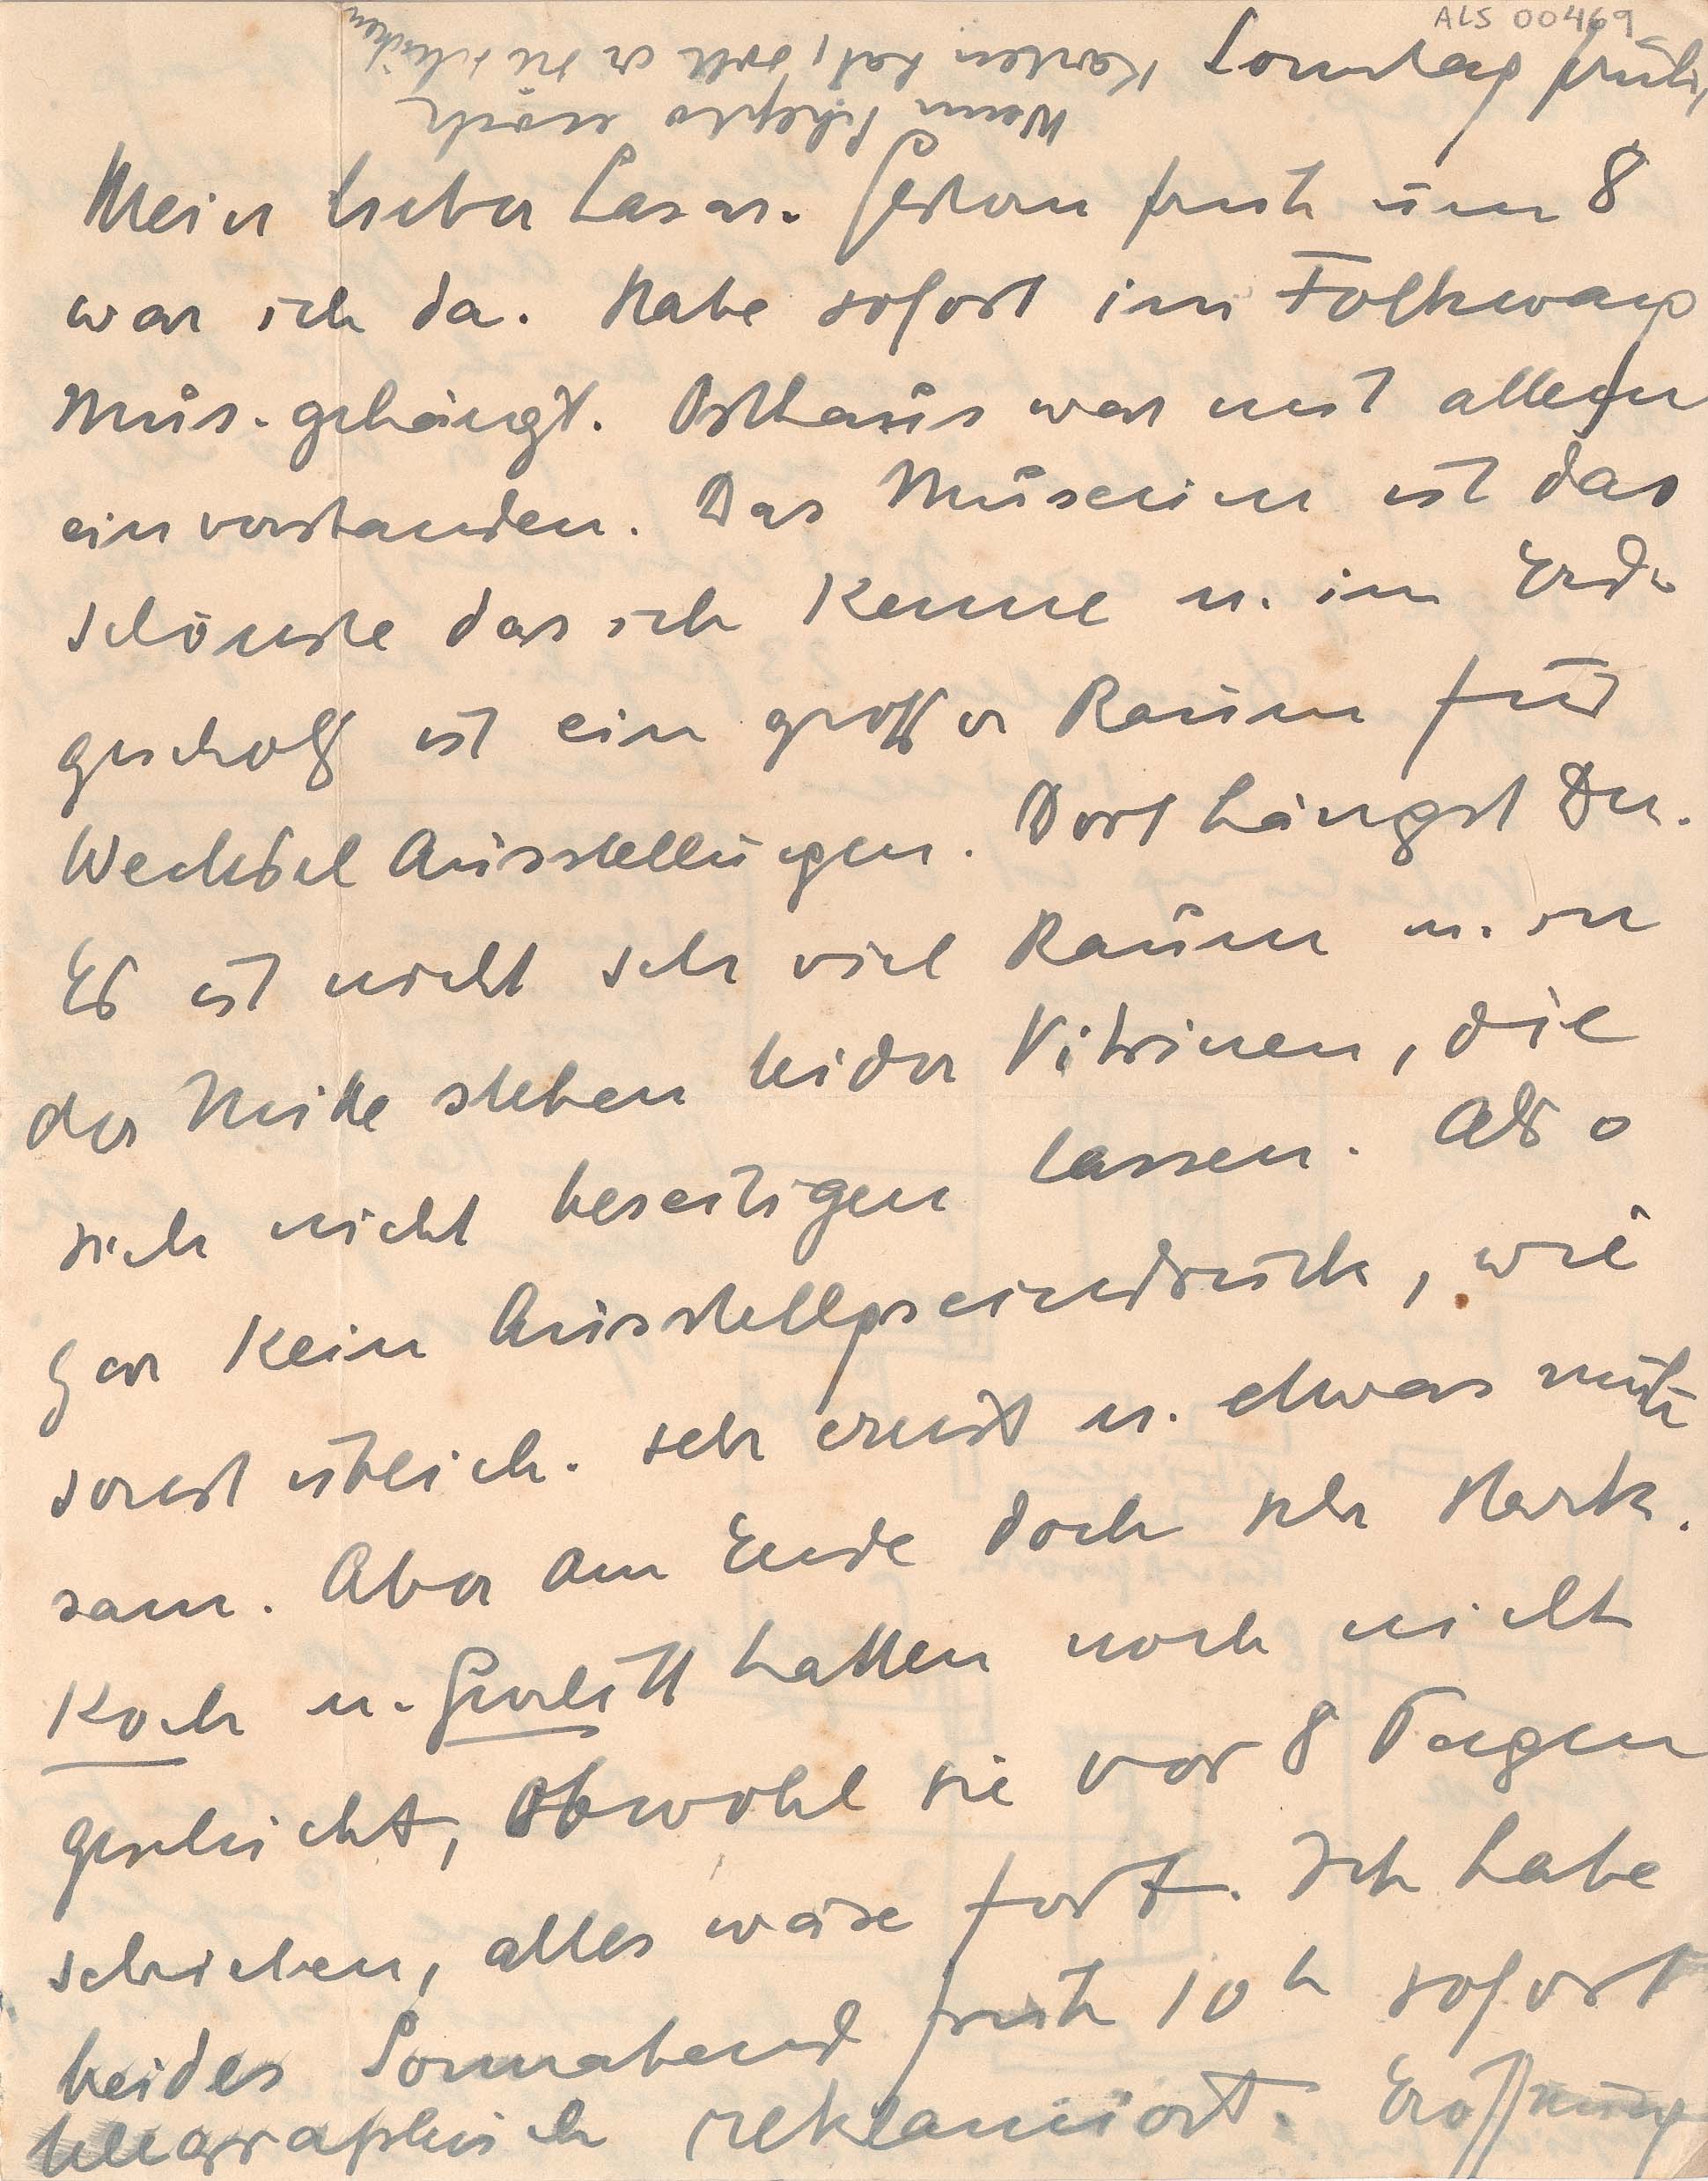 ALS 00469
Sonntag früh,
Wenn Schapiro noch
Karten hat, soll er sie schicken
Mein lieber Lasar. Gestern früh um 8
war ich da. Habe sofort im Folkwang
Mus. gehängt. Osthaus war mit allem
einverstanden. Das Museum ist das
schönste das ich kenne u. im Erd-
geschoß ist ein großer Raum für
Wechsel Ausstellugen. Dort hängst Du.
Es ist nicht sehr viel Raum u. in
der Mitte stehen leider Vitrinen, die
sich nicht beseitigen lassen. Also
gar kein Ausstellgseindruck, wie
sonst üblich. sehr ernst u. etwas müh-
sam. Aber am Ende doch sehr stark.
Koch u. Gurlitt hatten noch nicht
geschickt, obwohl sie vor 8 Tagen
schrieben, alles wäre fort. Ich habe
beides Sonnabend früh 10h sofort
telegraphisch reklamiert. Eröffnung